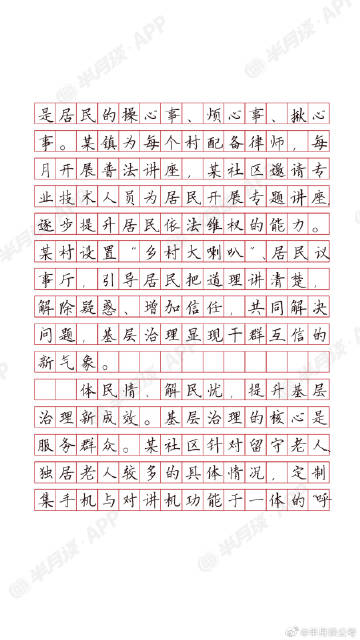 是居民的操心事、烦心事、揪心
事。某镇为每个村配备律师，每
月开展普法讲座，某社区邀请专
业技术人员为居民开展专题讲座，
逐步提升居民依法维权的能力。
某村设置“乡村大喇叭”、居民议
事厅，引导居民把道理讲清楚，
解除疑惑、增加信任，共同解决
问题，基层治理显现干群互信的
新气象。
体民情、解民忧，提升基层
治理新成效。基层治理的核心是
服务群众。某社区针对留守老人、
独居老人较多的具体情况，定制
集手机与对讲机功能于一体的呼
半月谈·APP
@半月谈公考